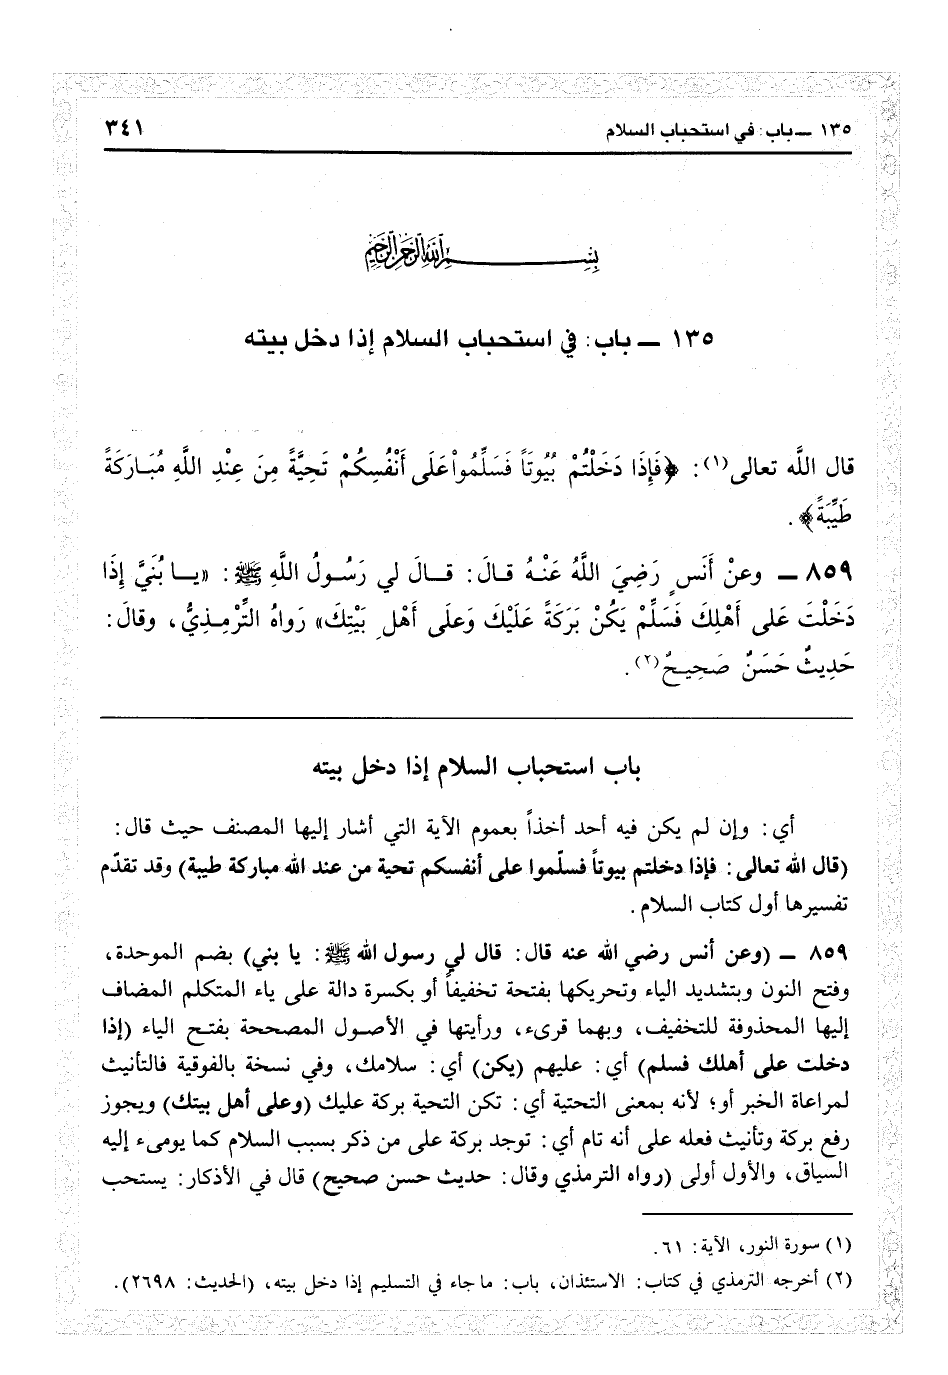 ١٣٥ ــ باب: في استحباب السلام
٣٤١
بسم الله الرحمن الرحيم
١٣٥ ــ باب: في استحباب السلام إذا دخل بيته
قال اللَّه تعالى(١): ﴿فَإِذَا دَخَلْتُمْ بُيُوتَاً فَسَلِّمُواْ عَلَى أَنْفُسِكُمْ تَحِيَّةً مِنَ عِنْدِ اللَّهِ مُبَـارَكَةً
طَيِّبَةً﴾.
٨٥٩ ــ وعنْ أَنَسٍ رَضِيَ اللَّهُ عَنْـهُ قـالَ: قـالَ لي رَسُـولُ اللَّهِ ﷺ: «يـا بُنَيَّ إِذَا
دَخَلْتَ عَلى أَهْلِكَ فَسَلِّمْ يَكُنْ بَرَكَةً عَلَيْكَ وَعَلى أَهْلِ بَيْتِكَ» رَواهُ التِّرْمِـذِيُّ، وقالَ:
حَدِيثٌ حَسَنٌ صَحِيـحٌ(٢).
باب استحباب السلام إذا دخل بيته
أي: وإن لم يكن فيه أحد أخذاً بعموم الآية التي أشار إليها المصنف حيث قال:
(قال الله تعالى: فإذا دخلتم بيوتاً فسلّموا على أنفسكم تحية من عند الله مباركة طيبة) وقد تقدّم
تفسيرها أول كتاب السلام.
٨٥٩ ــ (وعن أنس رضي الله عنه قال: قال لي رسول الله ﷺ: يا بني) بضم الموحدة،
وفتح النون وبتشديد الياء وتحريكها بفتحة تخفيفاً أو بكسرة دالة على ياء المتكلم المضاف
إليها المحذوفة للتخفيف، وبهما قرىء، ورأيتها في الأصـول المصححة بفتـح الياء (إذا
دخلت على أهلك فسلم) أي: عليهم (يكن) أي: سلامك، وفي نسخة بالفوقية فالتأنيث
لمراعاة الخبر أو؛ لأنه بمعنى التحتية أي: تكن التحية بركة عليك (وعلى أهل بيتك) ويجوز
رفع بركة وتأنيث فعله على أنه تام أي: توجد بركة على من ذكر بسبب السلام كما يومىء إليه
السياق، والأول أولى (رواه الترمذي وقال: حديث حسن صحيح) قال في الأذكار: يستحب
(١) سورة النور، الآية: ٦١.
(٢) أخرجه الترمذي في كتاب: الاستئذان، باب: ما جاء في التسليم إذا دخل بيته، (الحديث: ٢٦٩٨).